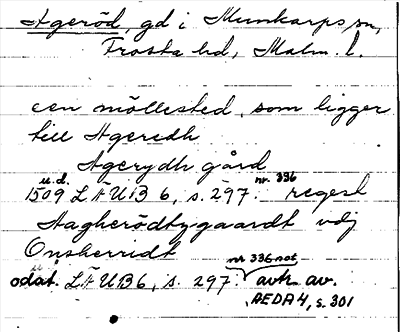 Ageröd, gd i Munkarps sn,
Frosta hd, Malm. l.
een möllested, som ligger
till Ageredh
Agerydh gård
u.d. nr. 336
1509 LÄUB 6, s. 297. regest
Hagherödtzgaardt vdj
Onsherridt
nr 336 not
odat. LÄUB6, s. 297. avtr. av.
AEDA4, s. 301